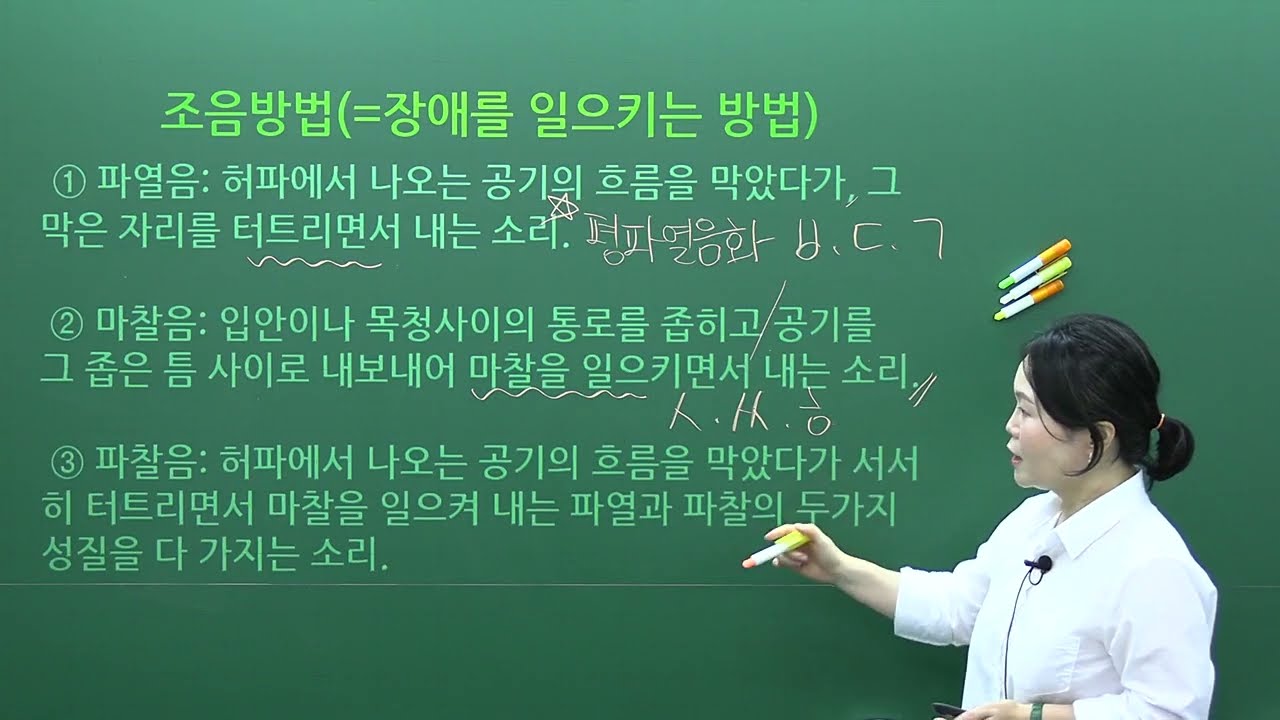 조음방법(=장애를 일으키는 방법)
① 파열음: 허파에서 나오는 공기의 흐름을 막았다가, 그
막은 자리를 터트리면서 내는 소리.
평파열음화 ㅂ.ㄷ.ㄱ
② 마찰음: 입안이나 목청사이의 통로를 좁히고 공기를
그 좁은 틈 사이로 내보내어 마찰을 일으키면서 내는 소리.
ㅅ.ㅆ.ㅎ
③ 파찰음: 허파에서 나오는 공기의 흐름을 막았다가 서서
히 터트리면서 마찰을 일으켜 내는 파열과 파찰의 두가지
성질을 다 가지는 소리.